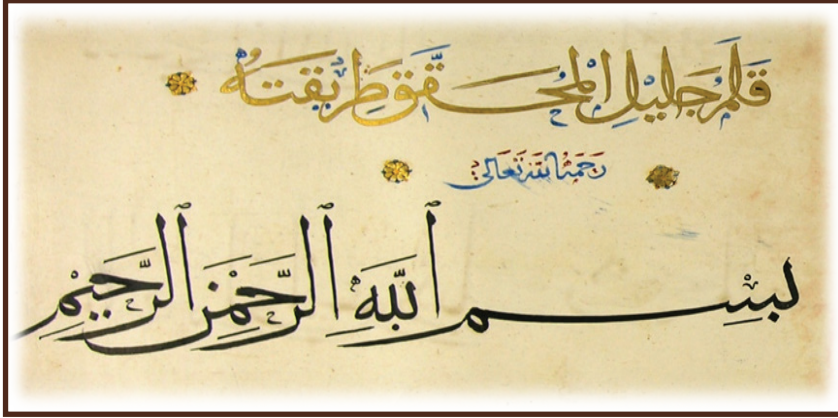 قَلَمُ جَلِيلِ الْمُحَقَّقِ طَرِيقَتُهُ
رَحِمَهُ اللهُ تَعَالَى
بِسْمِ اللَّهِ الرَّحْمَنِ الرَّحِيمِ